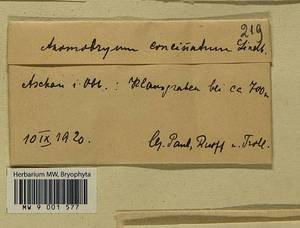 219
Anomobryum concinnatum Lindb.
Aschau i. Obb. : Klausgraben bei ca 700m
10 IX 1920. lg. Paul, Ruoff u. Troll.
Herbarium MW, Bryophyta
MW 9 001 577